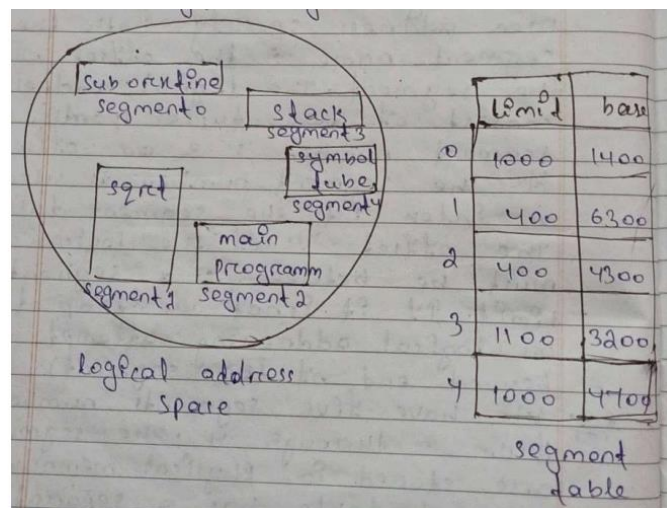 suboroutine
segment 0
stack
segment 3
symbol
tube
segment 4
sqrt
segment 1
main
programm
segment 2
logical address
space
limit base
0 1000 1400
1 400 6300
2 400 4300
3 1100 3200
4 1000 4700
segment
table